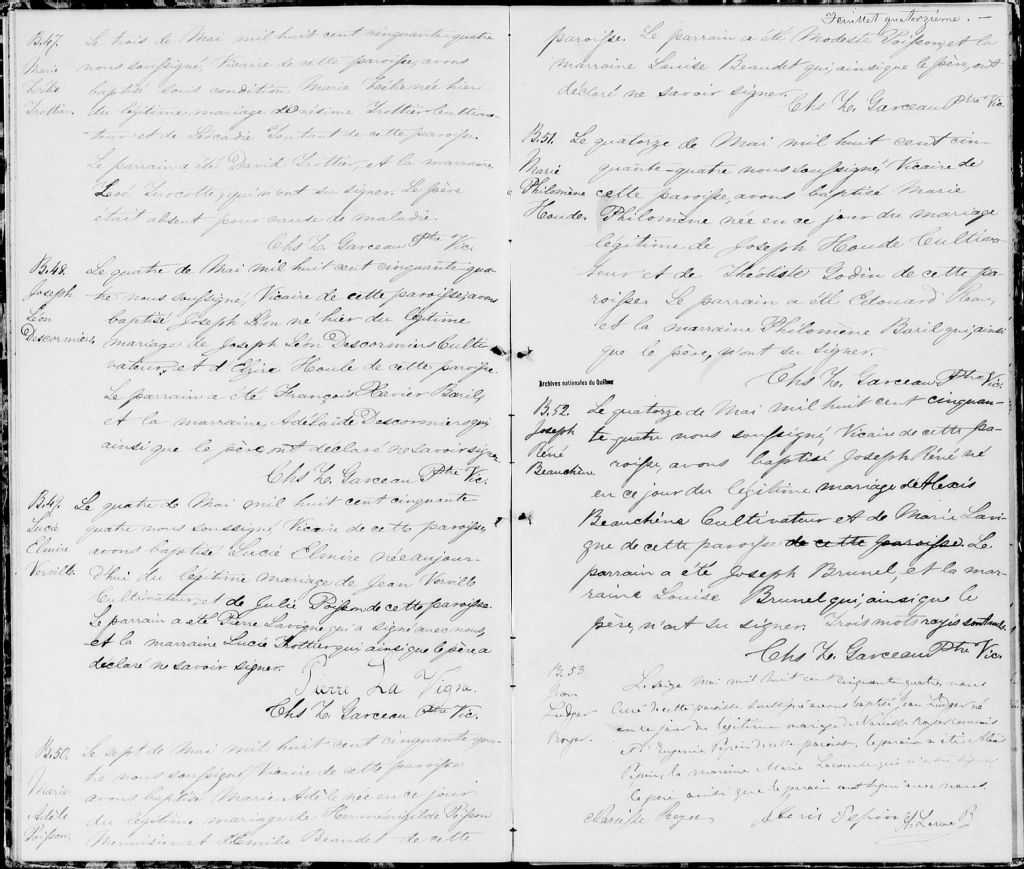 B.47.
Marie
Zoé
Trottier.
Le trois de Mai mil huit cent cinquante quatre
nous soussigné, Vicaire de cette paroisse, avons
baptisé sous condition Marie née hier
du légitime mariage Trottier Cultiva-
teur et de Léocadie de cette paroisse.
Le parrain a été David Trottier, et la marraine
Zoé Turcotte, qui n'ont su signer. Le père
était absent pour cause de maladie.
Chs Z. Garceau Ptre Vic.
B.48.
Joseph
Léon
Descormiers.
Le quatre de Mai mil huit cent cinquante qua-
tre nous soussigné, Vicaire de cette paroisse, avons
baptisé Joseph Léon né hier du légitime
mariage de Joseph Léon Descormiers Culti-
vateur, et d'Elzire Houle de cette paroisse.
Le parrain a été François Xavier Baril,
et la marraine Adélaïde Descormiers qui,
ainsi que le père, ont déclaré ne savoir signer.
Chs Z. Garceau Ptre Vic.
B.49.
Lucie
Elmire
Vervile.
Le quatre de Mai mil huit cent cinquante
quatre nous soussigné, Vicaire de cette paroisse,
avons baptisé Lucie Elmire née aujour-
d'hui du légitime mariage de Jean Vervile
Cultivateur, et de Julie Poisson de cette paroisse.
Le parrain a été Pierre Lavigne qui a signé avec nous,
et la marraine Lucie Trottier qui, ainsi que le père a
declaré ne savoir signer.
Pierre La Vigne.
Chs Z. Garceau Ptre Vic.
B.50.
Marie
Adèle
Poisson.
Le sept de Mai mil huit cent cinquante qua-
tre nous soussigné, Vicaire de cette paroisse
avons baptisé Marie Adèle née en ce jour
du légitime mariage de Herménégilde Poisson
Menuisier et d'Emilie Beaudet de cette
Feuillet quatorzième. -
paroisse. Le parrain a été Modeste Poisson, et la
marraine Louise Beaudet qui, ainsi que le père, ont
déclaré ne savoir signer.
Chs Z. Garceau Ptre Vic.
B.51.
Marie
Philomène
Houde.
Le quatorze de Mai mil huit cent cin-
quante-quatre nous soussigné, Vicaire de
cette paroisse, avons baptisé Marie
Philomène née en ce jour du mariage
légitime de Joseph Houde Cultiva-
teur et de Théotiste Godin de cette pa-
roisse. Le parrain a été Edouard
et la marraine Philomène Baril qui, ainsi
que le père, n'ont su signer.
Chs Z. Garceau Ptre Vic.
Archives nationales du Québec
B.52.
Joseph
René
Beauchène
Le quatorze de Mai mil huit cent cinquan-
te quatre nous soussigné, Vicaire de cette pa-
roisse, avons baptisé Joseph René né
en ce jour du légitime mariage de Alexis
Beauchène Cultivateur et de Marie Lavi-
gne de cette paroisse de cette paroisse. Le
parrain a été Joseph Brunel, et la mar-
raine Louise Brunel qui, ainsi que le
père, n'ont su signer. Trois mots rayés sont nuls.
Chs Z. Garceau Ptre Vic.
B.53
Jean
Ludger
Roger.
Le seize Mai mil huit cent cinquante quatre, nous
Curé de cette paroisse soussigné avons baptisé Jean Ludger né
en ce jour du légitime mariage de Narcisse Roger
Eugénie Pepin de cette paroisse, le parain a été Alexis
Pepin, la maraine Marie Lacourse qui n'a su signer
le père ainsi que le parain ont signé avec nous.
Narcisse Roger Alexis Pepin